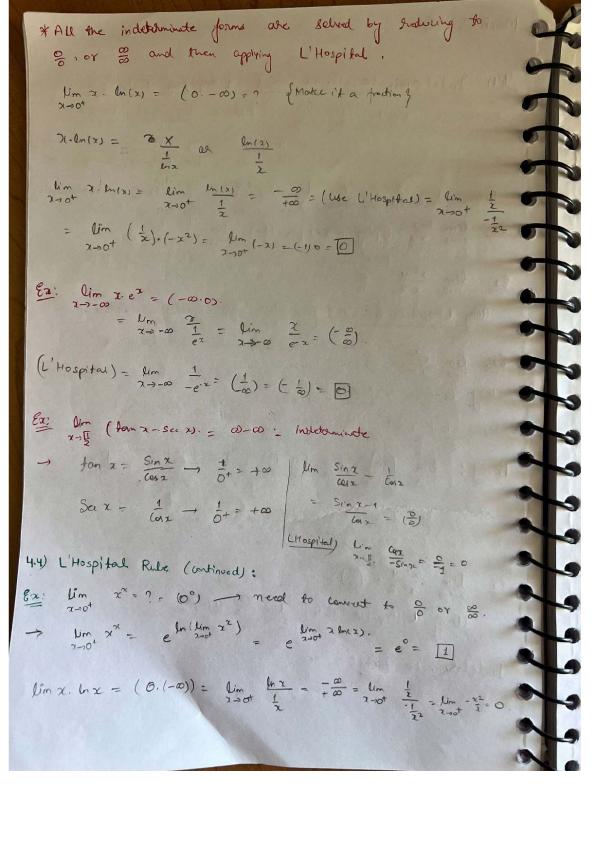 * All the indeterminate forms are solved by reducing to
0/0, or ∞/∞ and then applying L'Hospital.
lim x→0⁺ x · ln(x) = (0·-∞) = ? {Make it a fraction}
x·ln(x) = x / (1/ln x) or ln(x) / (1/x)
lim x→0⁺ x·ln(x) = lim x→0⁺ ln(x) / (1/x) = -∞/+∞ = (Use L'Hospital) = lim x→0⁺ (1/x) / (-1/x²)
= lim x→0⁺ (1/x)·(-x²) = lim x→0⁺ (-x) = (-1) 0 = 0
Ex: lim x→-∞ x·eˣ = (-∞·0).
= lim x→-∞ x / (1/eˣ) = lim x→-∞ x / e⁻ˣ = (-∞/∞).
(L'Hospital) = lim x→-∞ 1 / -e⁻ˣ = (1/-∞) = (-1/∞) = 0
Ex: lim x→π/2 (tan x - sec x). = ∞-∞ = Indeterminate
→ tan x = Sin x / Cos x → 1/0⁺ = +∞
Sec x = 1 / Cos x → 1/0⁺ = +∞
lim Sin x / Cos x - 1 / Cos x
= Sin x - 1 / Cos x = (0/0)
(L'Hospital) lim x→π/2 Cos x / -Sin x = 0/-1 = 0
4.4) L'Hospital Rule (continued):
Ex: lim x→0⁺ xˣ = ? = (0⁰) → need to convert to 0/0 or ∞/∞.
→ lim x→0⁺ xˣ = e^(ln(lim x→0⁺ xˣ)) = e^(lim x→0⁺ x ln(x)). = e⁰ = 1
lim x. ln x = (0.(-∞)) = lim x→0⁺ ln x / (1/x) = -∞/+∞ = lim x→0⁺ (1/x) / (-1/x²) = lim x→0⁺ -x²/x = 0